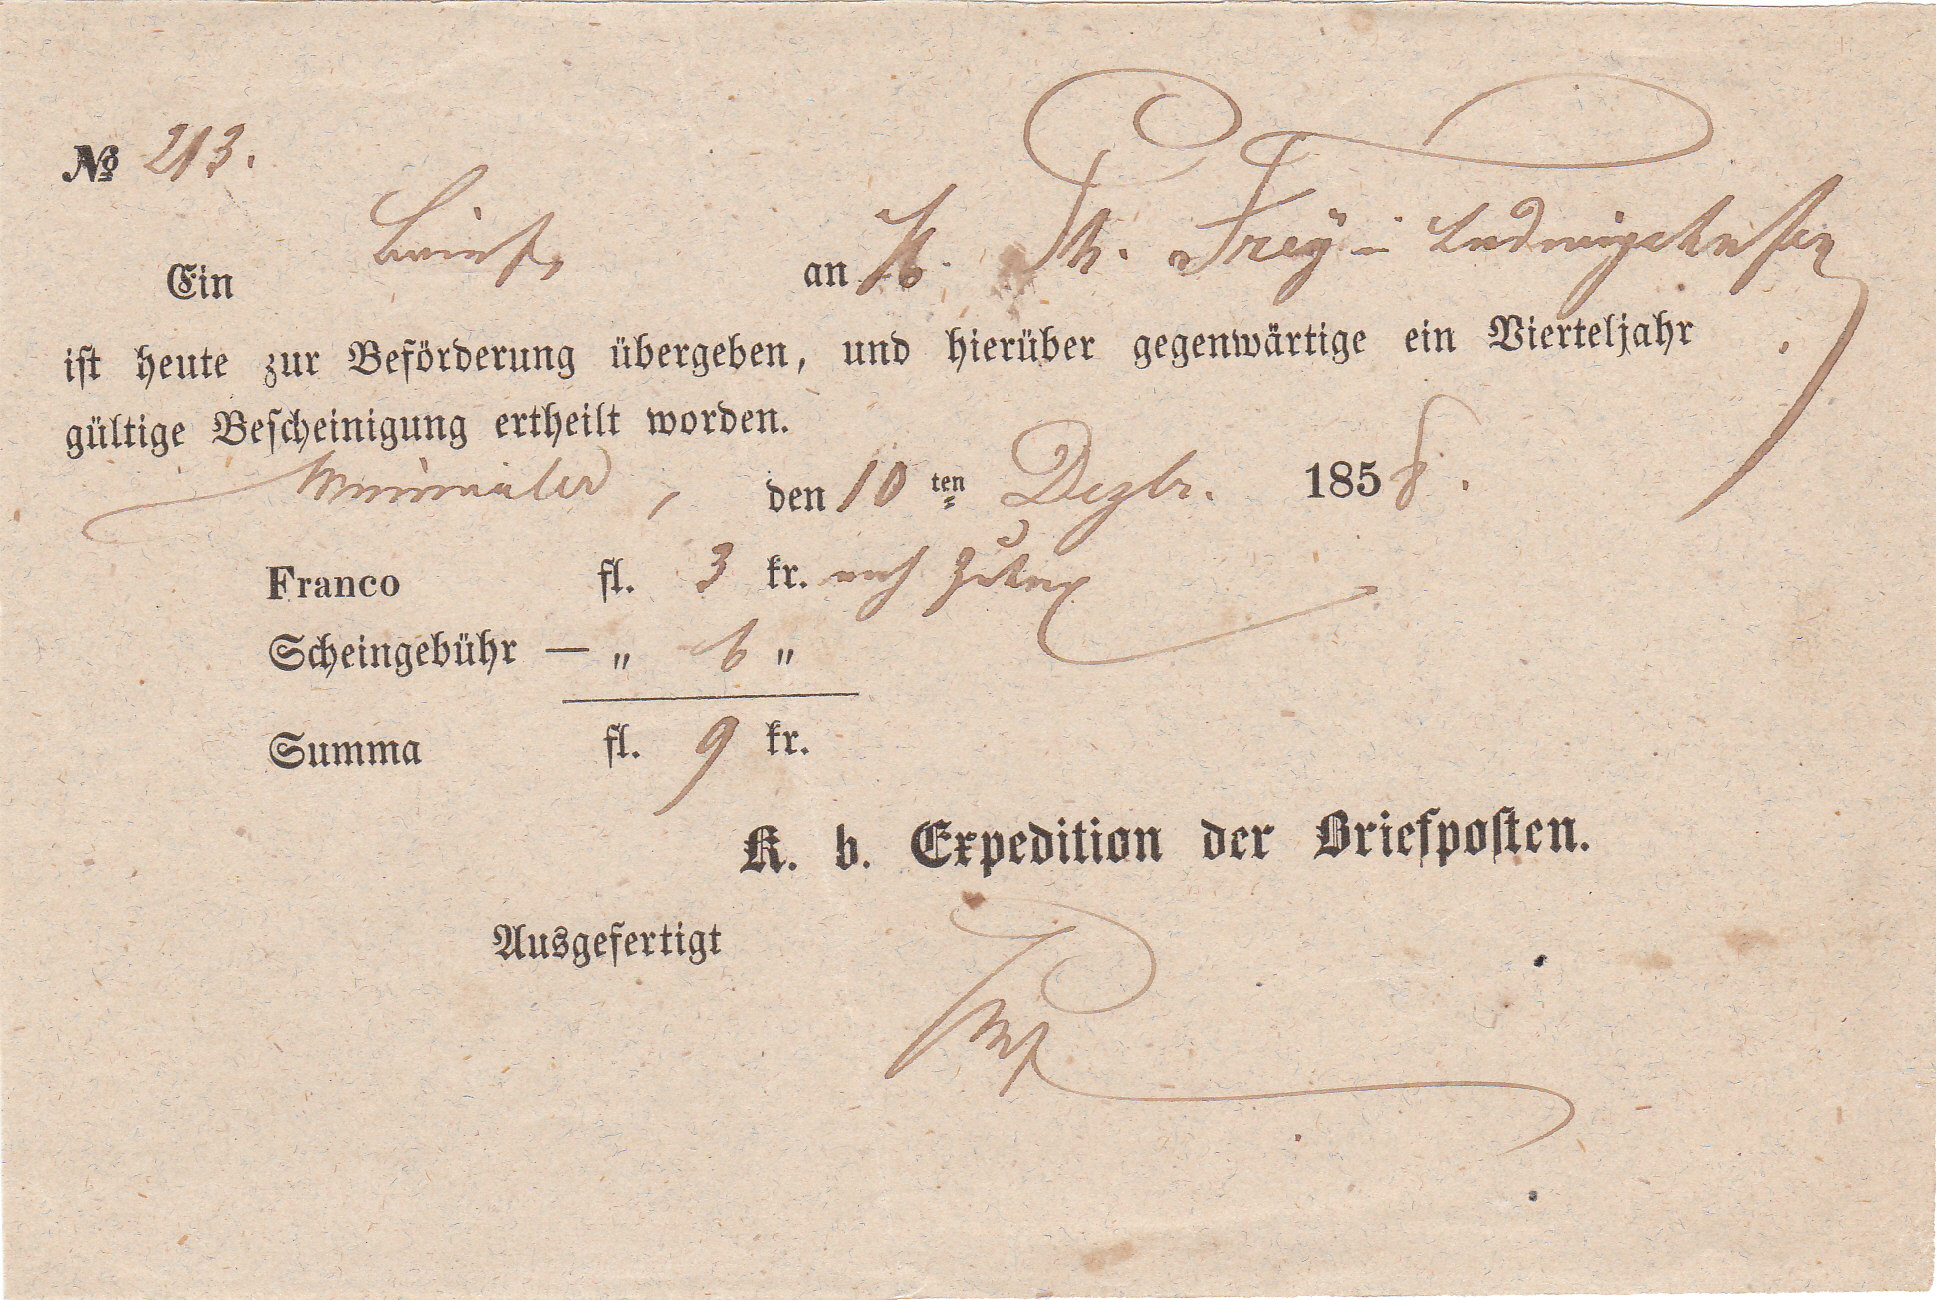 № 213.
Ein Brief, an H. Ph. Frey in Ludwigshafen
ist heute zur Beförderung übergeben, und hierüber gegenwärtige ein Vierteljahr
gültige Bescheinigung ertheilt worden.
Winnweiler, den 10 ten Dezbr. 1858.
Franco fl. 3 kr.
Scheingebühr — „ 6 „
Summa fl. 9 kr.
K. b. Expedition der Briefposten.
Ausgefertigt